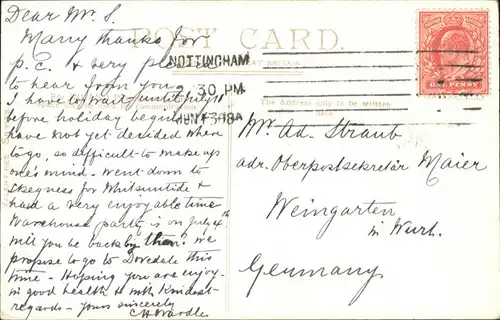 Dear Mr. S.
Many thanks for
p.c. & very pleased
to hear from you.
I have to wait until July 11
before holiday begin,
have not yet decided where
to go, so difficult to make up
one's mind - went down to
Skegness for Whitsuntide &
had a very enjoyable time
Warehouse party is on July 4th
will you be back by then? we
propose to go to Dovedale this
time - Hoping you are enjoy-
in good health & with Kindest
regards - Yours sincerely
C H Wardle
POST CARD.
GREAT BRITAIN.
NOTTINGHAM
2.30 PM
JUN 13 08
The Address only to be written
here
ONE PENNY
Mr. Ad. Straub
adr. Oberpostsekretär Maier
Weingarten
in Wurt.
Germany